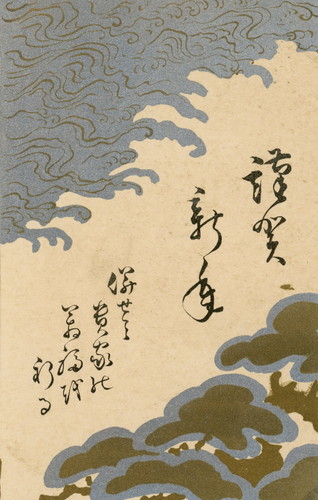 謹賀
新年
併せて
貴家の
萬福を
祈る